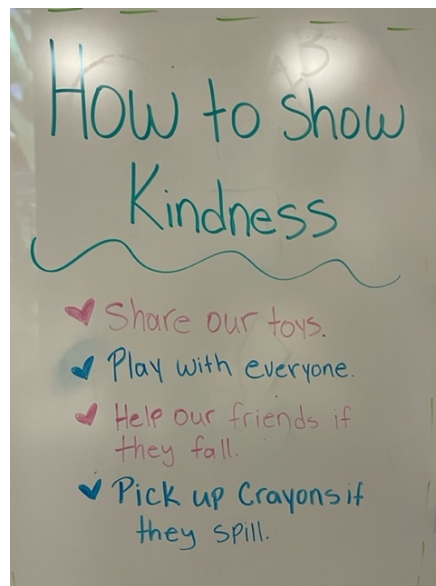 How to show
Kindness
Share our toys.
Play with everyone.
Help our friends if
they fall.
Pick up Crayons if
they spill.